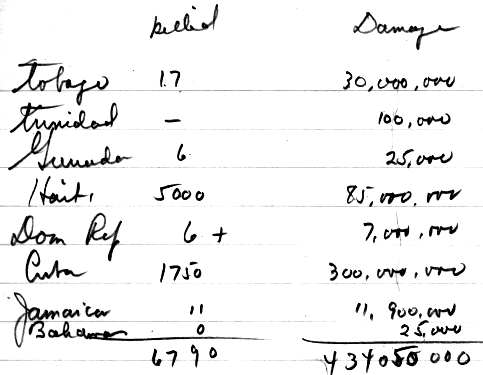 killed Damage
Tobago 17 30,000,000
Trinidad — 100,000
Grenada 6 25,000
Haiti 5000 85,000,000
Dom Rep 6 + 7,000,000
Cuba 1750 300,000,000
Jamaica 11 11,900,000
Bahamas 0 25,000
6790 434050000